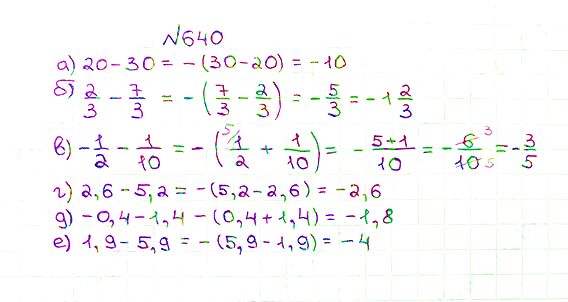 №640
а) 20 - 30 = -(30 - 20) = -10
б) 2/3 - 7/3 = -(7/3 - 2/3) = -5/3 = -1 2/3
в) -1/2 - 1/10 = -(⁵⁄1/2 + 1/10) = - 5+1/10 = - 6 3/10 5 = -3/5
г) 2,6 - 5,2 = -(5,2 - 2,6) = -2,6
д) -0,4 - 1,4 - (0,4 + 1,4) = -1,8
е) 1,9 - 5,9 = -(5,9 - 1,9) = -4